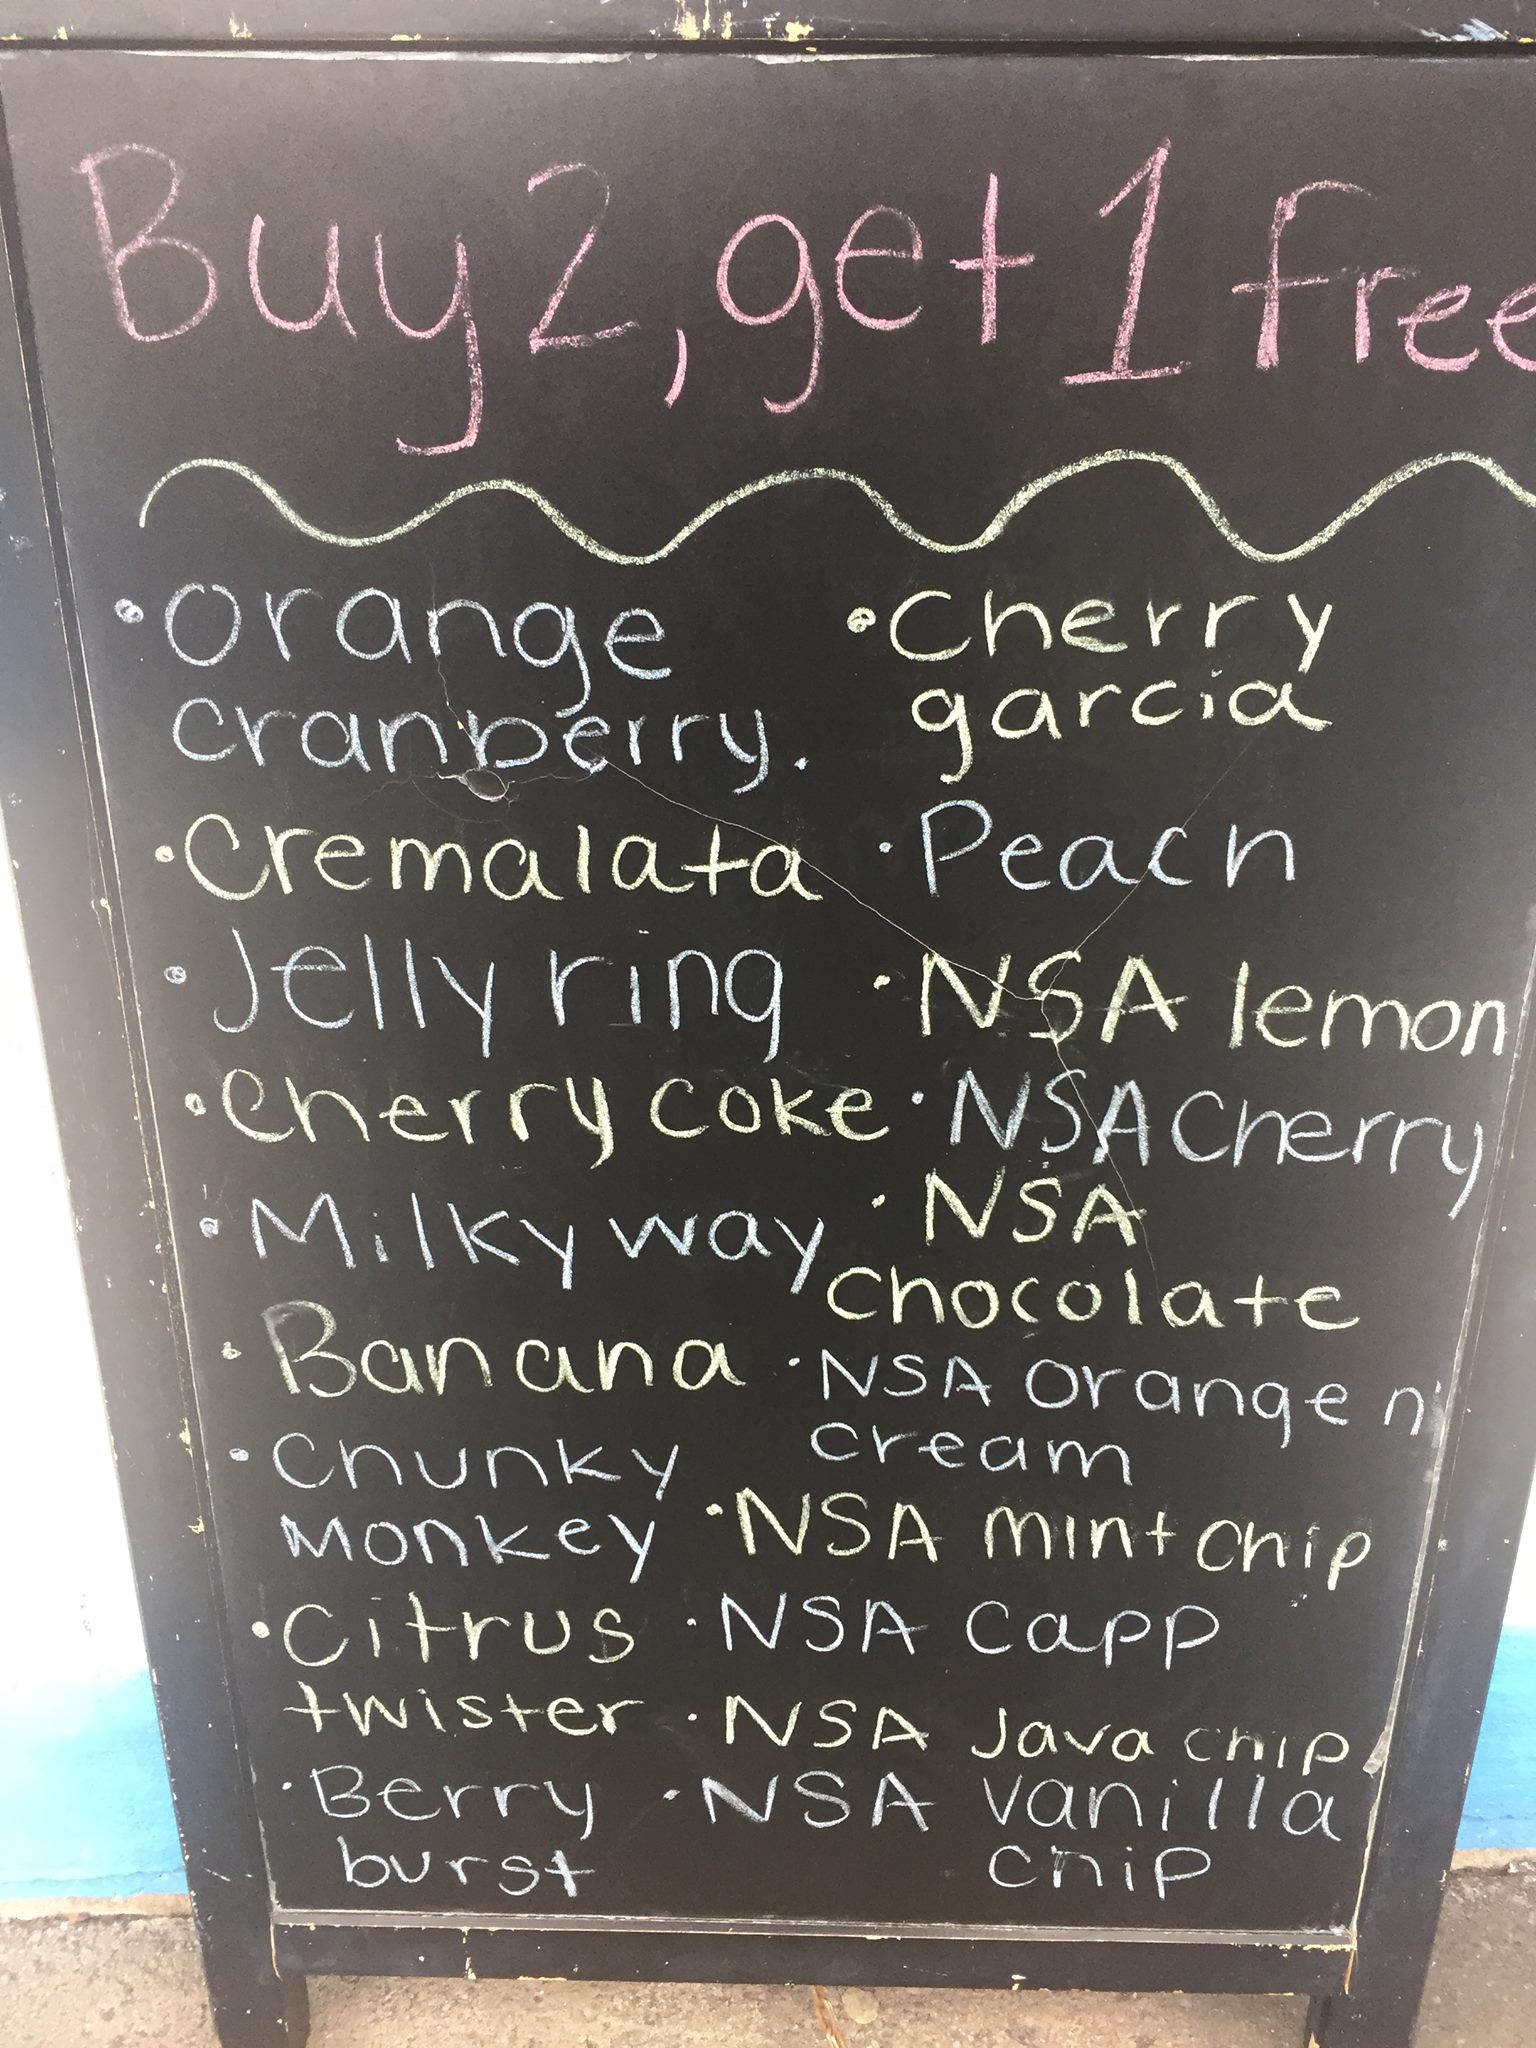 Buy 2, get 1 free
• Orange
cranberry.
• Cremalata
• Jelly ring
• Cherry coke
• Milky way
• Banana
• Chunky
Monkey
• Citrus
twister
• Berry
burst
• Cherry
garcia
• Peach
• NSA lemon
• NSA Cherry
• NSA
chocolate
• NSA Orange n'
cream
• NSA mint chip
• NSA Capp
• NSA Java chip
• NSA Vanilla
chip